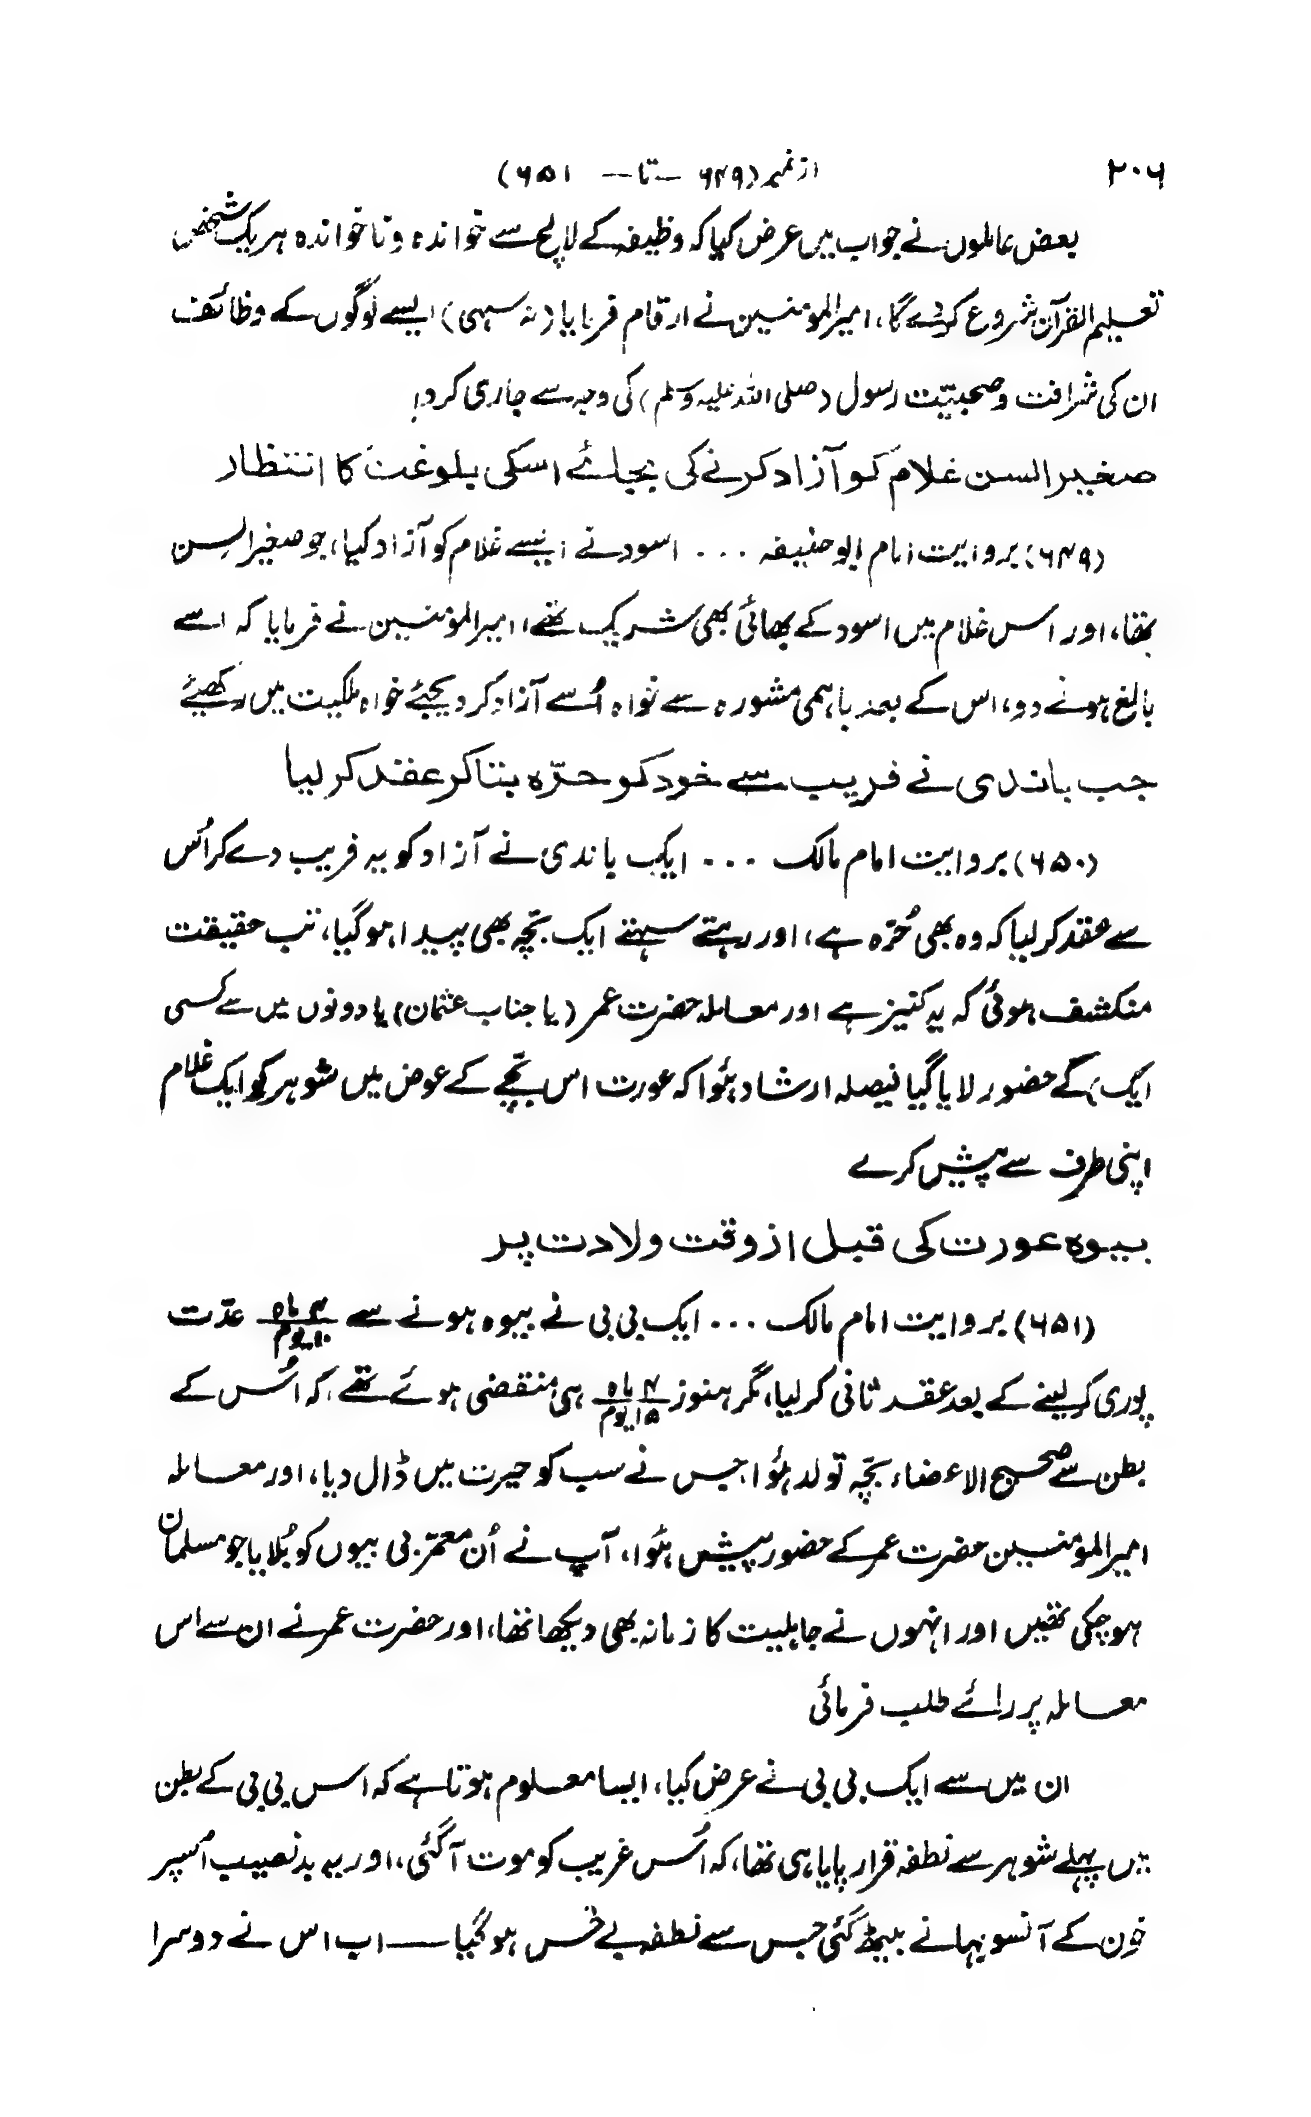 ۲۰۶ از نمبر (۶۴۹ — تا — ۶۵۱)
بعض عاملوں نے جواب میں عرض کیا کہ وظیفہ کے لالچ سے خواندہ و ناخواندہ ہر یک شخص
تعلیم القرآن شروع کر دے گا، امیر المومنین نے ارقام فرمایا (نہ سہی) ایسے لوگوں کے وظائف
ان کی شرافت و صحبیّت رسول (صلی اللہ علیہ وسلم) کی وجہ سے جاری کر دو!
صغیر السن غلام کو آزاد کرنے کی بجائے اسکی بلوغت کا انتظار
(۶۴۹) بروایت امام ابو حنیفہ ... اسود نے ایسے غلام کو آزاد کیا، جو صغیر السن
تھا، اور اس غلام میں اسود کے بھائی بھی شریک تھے، امیر المؤمنین نے فرمایا کہ اسے
بالغ ہونے دو، اس کے بعد باہمی مشورہ سے خواہ اُسے آزاد کر دیجئے خواہ ملکیت میں رکھیئے
جب باندی نے فریب سے خود کو حرّہ بتا کر عقد کر لیا
(۶۵۰) بروایت امام مالک ... ایک باندی نے آزاد کو یہ فریب دے کر اُس
سے عقد کر لیا کہ وہ بھی حُرّہ ہے، اور رہتے سہتے ایک بچّہ بھی پیدا ہو گیا، تب حقیقت
منکشف ہوئی کہ یہ کنیز ہے اور معاملہ حضرت عمر (یا جناب عثمان) یا دونوں میں سے کسی
ایک) کے حضور لایا گیا فیصلہ ارشاد ہُوا کہ عورت اس بچّے کے عوض میں شوہر کو ایک غلام
اپنی طرف سے پیش کرے
بیوہ عورت کی قبل از وقت ولادت پر
(۶۵۱) بروایت امام مالک ... ایک بی بی نے بیوہ ہونے سے ۴ ماہ ۱۰ یوم عدّت
پوری کر لینے کے بعد عقد ثانی کر لیا، مگر ہنوز ۴ ماہ ۱۵ یوم ہی منقضی ہوئے تھے، کہ اُس کے
بطن سے صحیح الاعضاء بچّہ تولد ہُوا، جس نے سب کو حیرت میں ڈال دیا، اور معاملہ
امیر المؤمنین حضرت عمر کے حضور پیش ہُوا، آپ نے اُن معمّر بی بیوں کو بُلایا جو مسلمان
ہو چکی تھیں اور انہوں نے جاہلیت کا زمانہ بھی دیکھا تھا، اور حضرت عمر نے ان سے اس
معاملہ پر رائے طلب فرمائی
ان میں سے ایک بی بی نے عرض کیا، ایسا معلوم ہوتا ہے کہ اس بی بی کے بطن
میں پہلے شوہر سے نطفہ قرار پایا ہی تھا، کہ اُس غریب کو موت آ گئی، اور یہ بدنصیب اُسپر
خون کے آنسو بہانے بیٹھ گئی جس سے نطفہ بے حس ہو گیا — اب اس نے دوسرا